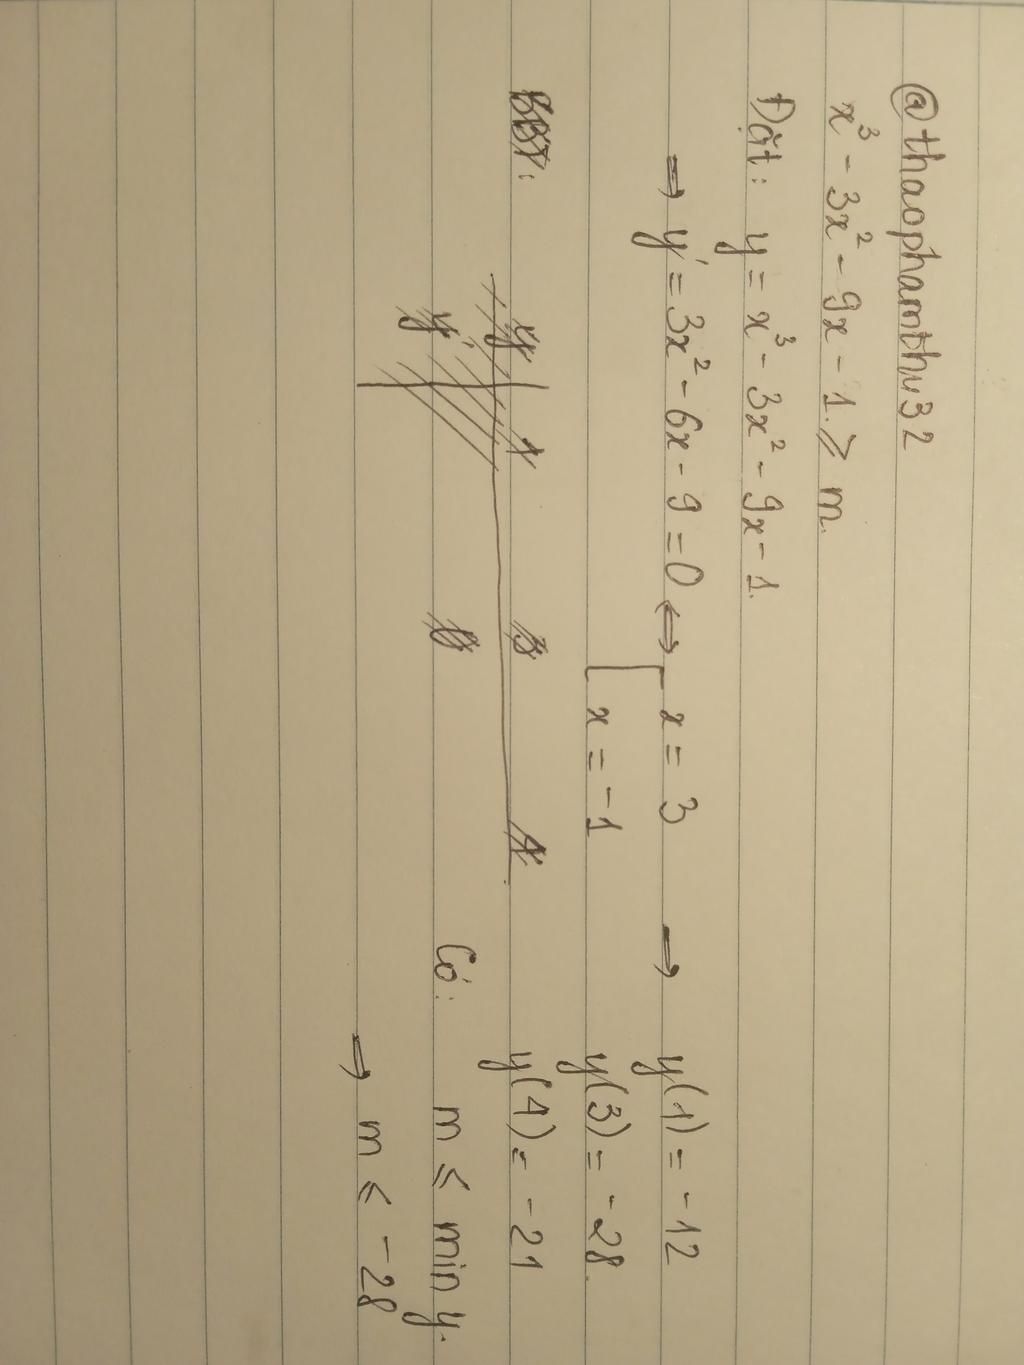 @thaophamthu32
x³ - 3x² - 9x - 1 ≥ m.
Đặt: y = x³ - 3x² - 9x - 1.
⇒ y' = 3x² - 6x - 9 = 0 ⇔ [ x = 3 ⇒ y(1) = -12
x = -1 y(3) = -28.
BBT: y(4) = -21
Có: m ≤ min y.
⇒ m ≤ -28